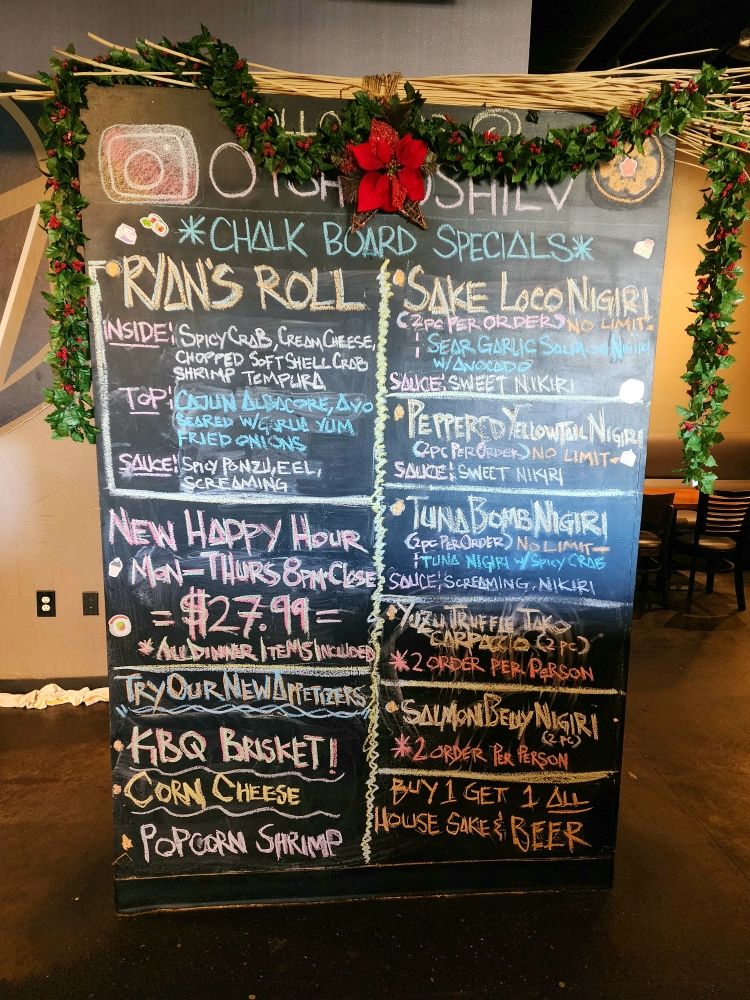 *CHALK BOARD SPECIALS*
RYAN'S ROLL
INSIDE: SPICY CRAB, CREAM CHEESE,
CHOPPED SOFT SHELL CRAB
SHRIMP TEMPURA
TOP: CAJUN ALBACORE, AVO
SEARED W/ GARLIC YUM
FRIED ONIONS
SAUCE: SPICY PONZU, EEL,
SCREAMING
NEW HAPPY HOUR
MON-THURS 8PM-CLOSE
= $27.99 =
*ALL DINNER ITEMS INCLUDED
TRY OUR NEW APPETIZERS
KBQ BRISKET!
CORN CHEESE
POPCORN SHRIMP
SAKE LOCO NIGIRI
(2PC PER ORDER) NO LIMIT-
: SEAR GARLIC SALMON NIGIRI
W/ AVOCADO
SAUCE: SWEET NIKIRI
PEPPERED YELLOWTAIL NIGIRI
(2PC PER ORDER) NO LIMIT-
SAUCE: SWEET NIKIRI
TUNA BOMB NIGIRI
(2PC PER ORDER) NO LIMIT-
: TUNA NIGIRI W/ SPICY CRAB
SAUCE: SCREAMING, NIKIRI
YUZU TRUFFLE TAKO
CARPACCIO (2PC)
*2 ORDER PER PERSON
SALMON BELLY NIGIRI
(2PC)
*2 ORDER PER PERSON
BUY 1 GET 1 ALL
HOUSE SAKE & BEER